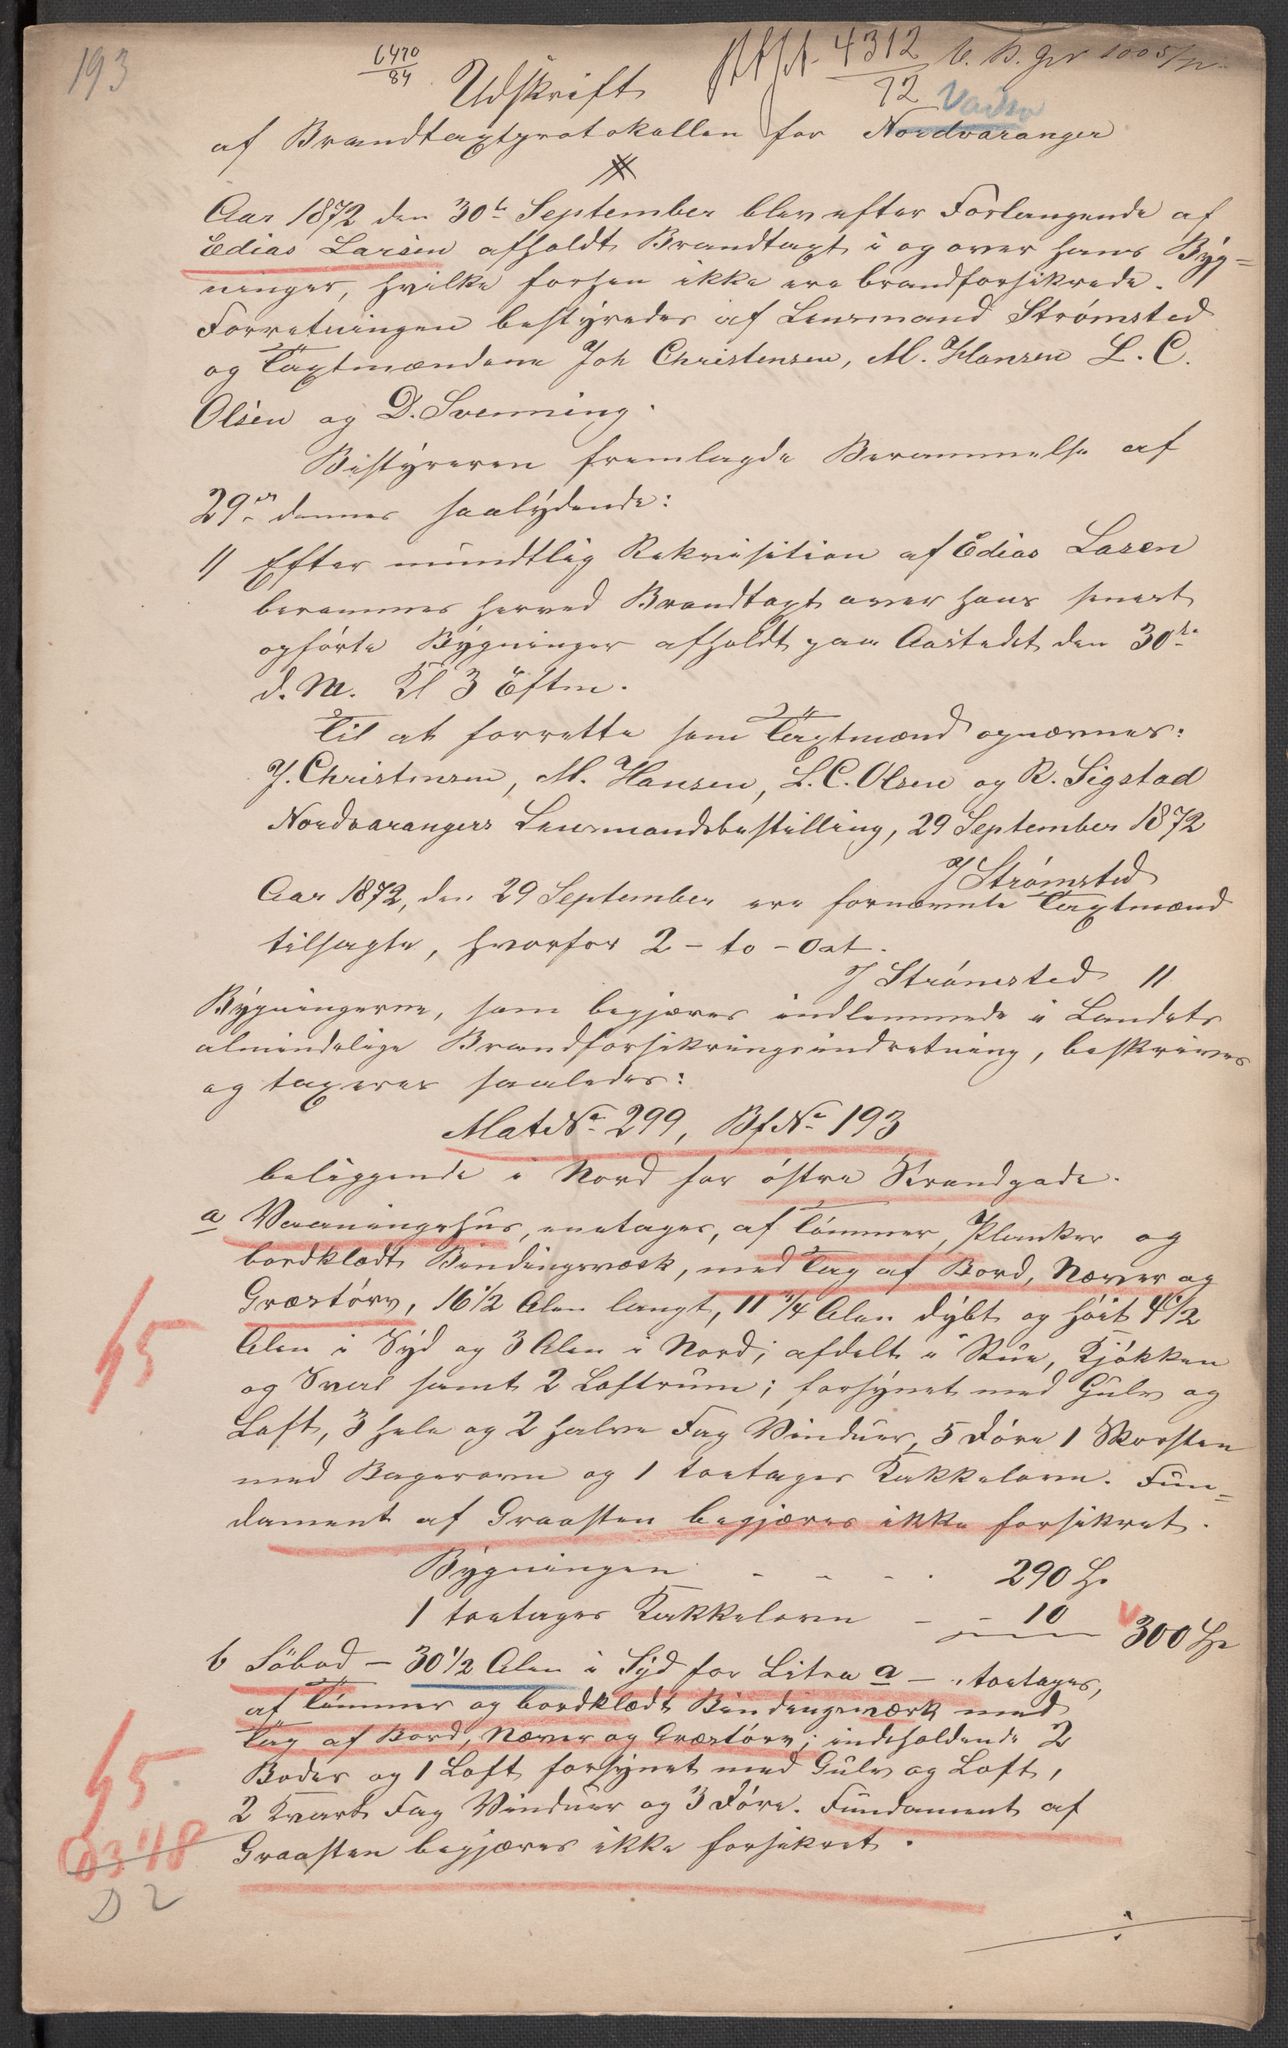 193
6470
84
4312
72
1005/72
Udskrift
Vadsø
af Brandtaxtprotokollen for Nordvaranger
Aar 1872 den 30te September blev efter Forlangende af
Edias Larsen afholdt Brandtaxt i og over hans Byg=
ninger, hvilke forhen ikke ere brandforsikrede.
Forretningen bestyredes af Lensmand Strømsted
og Taxtmændene Joh Christensen, M. Hansen L. C.
Olsen og D. Svenning.
Bestyreren fremlagde Berammelse af
29de dennes saalydende:
1/ Efter mundtlig Rekvisition af Edias Lasen
berammes herved Brandtaxt over hans senest
opførte Bygninger afholdt paa Aastedet den 30te
d. M. Kl 3 Eftm.
Til at forrette som Taxtmænd opnævnes:
J. Christensen, M. Hansen, L. C. Olsen og R. Sigstad
Nordvarangers Lensmandsbestilling, 29 September 1872
J Strømsted
Aar 1872, den 29 September ere fornævnte Taxtmænd
tilsagte, hvorfor 2 - to - Ort.
J Strømsted //
Bygningerne, som begjæres indlemmede i Landets
almindelige Brandforsikringsindretning, beskrives
og taxeres saaledes:
Mat No 299, Bf No 193
beliggende i Nord for østre Strandgade.
a Vaaningshus, enetages, af Tømmer, Planker og
bordklædt Bindingsværk, med Tag af Bord, Næver og
Græstørv, 16 1/2 Alen langt, 11 1/4 Alen dybt og høit 4 1/2
Alen i Syd og 3 Alen i Nord; afdelt i Stue, Kjøkken
og Sval samt 2 Loftrum; forsynet med Gulv og
Loft, 3 hele og 2 halve Fag Vinduer, 5 Døre 1 Skorsten
med Bagerovn og 1 toetages Kakkelovn. Fun=
dament af Graasten begjæres ikke forsikret.
Bygningen - - - . 290 Sp
1 toetages Kakkelovn - - 10 300 Sp
b Søbod - 30 1/2 Alen i Syd for Litra a - toetages,
af Tømmer og bordklædt Bindingsværk med
Tag af Bord, Næver og Græstørv; indeholdende 2
Boder og 1 Loft forsynet med Gulv og Loft,
2 Kvart Fag Vinduer og 3 Døre. Fundament af
Graasten begjæres ikke forsikret.
D 2